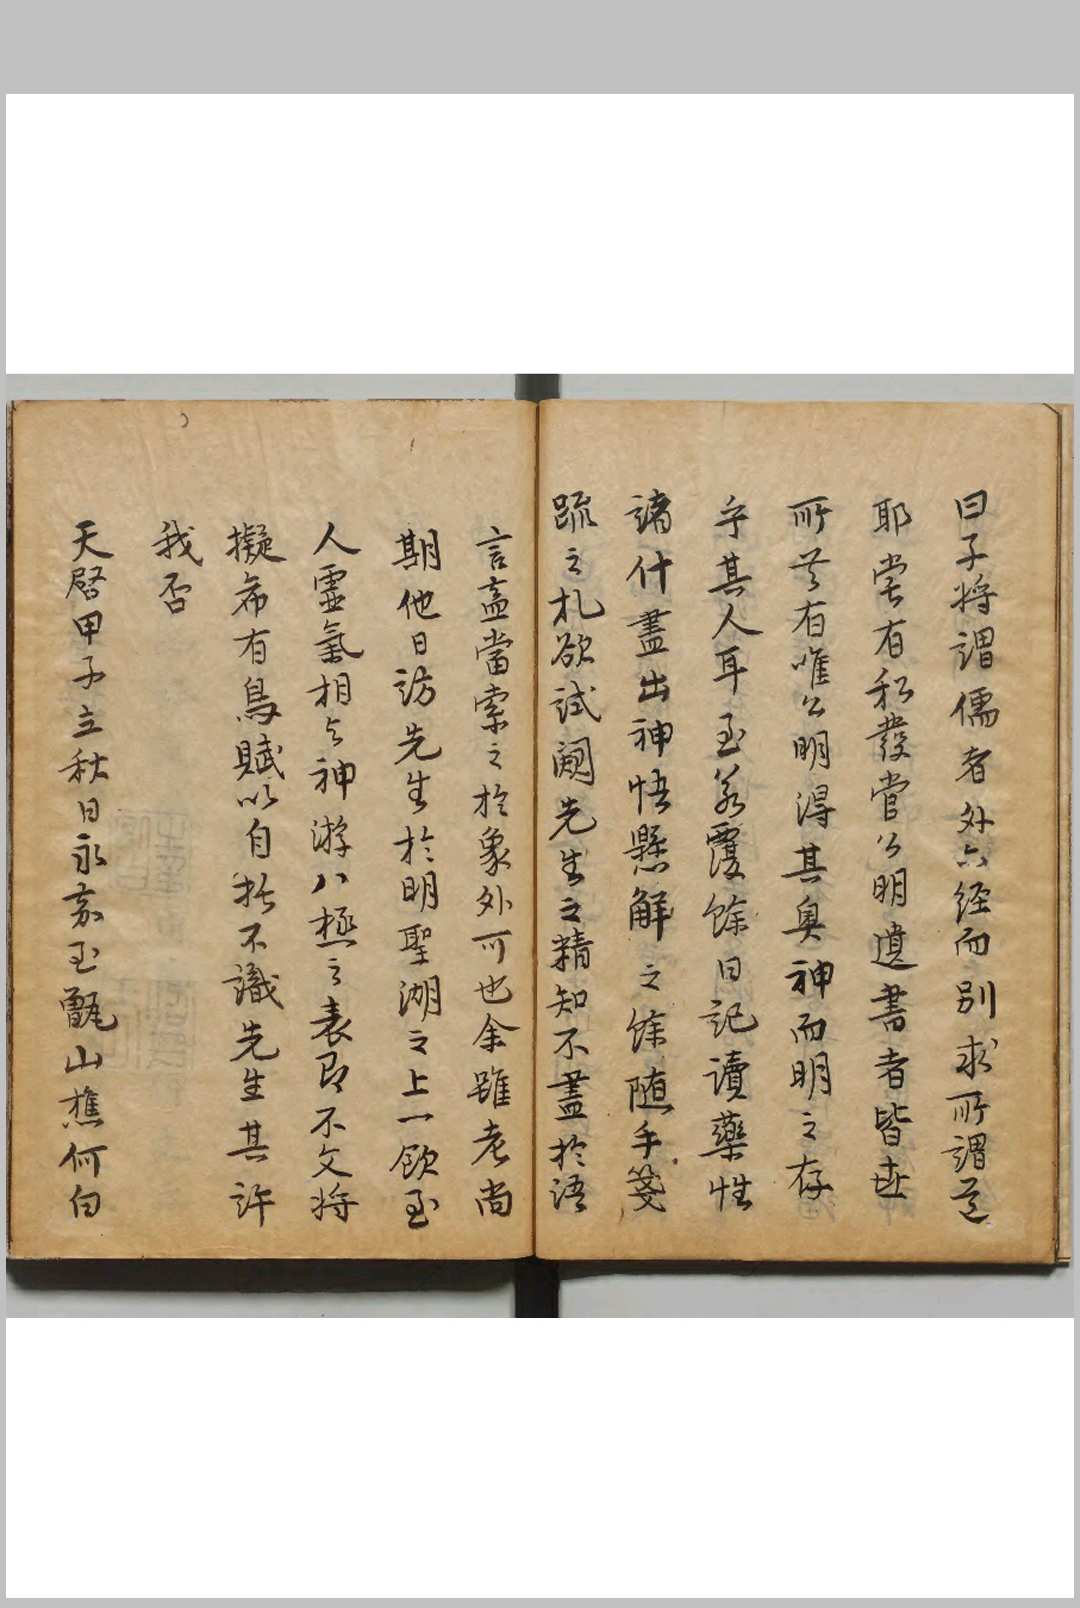 曰子將謂儒者外六經而別求所謂道
耶嘗有私發管公明遺書者皆世
所共有唯公明得其奧神而明之存
乎其人耳至若覆餘日記讀藥性
諸什盡出神悟懸解之餘隨手箋
疏之札欲試闞先生之精知不盡於語
言盍當索之於象外可也余雖老尚
期他日訪先生於明聖湖之上一飲至
人靈氣相與神游八極之表即不文將
擬希有鳥賦以自托不識先生其許
我否
天啓甲子立秋日永嘉玉甑山樵何白